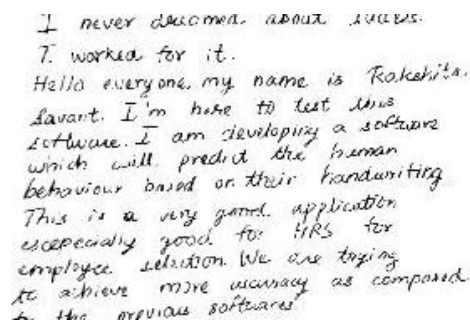 I never dreamed about success.
I worked for it.
Hello everyone, my name is Rakshita
Savant. I'm here to test this
software. I am developing a software
which will predict the human
behaviour based on their handwriting
This is a very good application
escepecially good for HRS for
employee selection We are trying
to achieve more accuracy as compared
to the previous softwares.